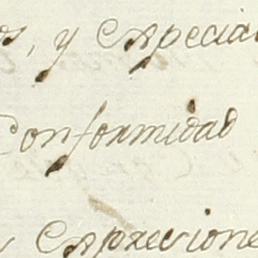 os, y especial
Conformidad
y expresione